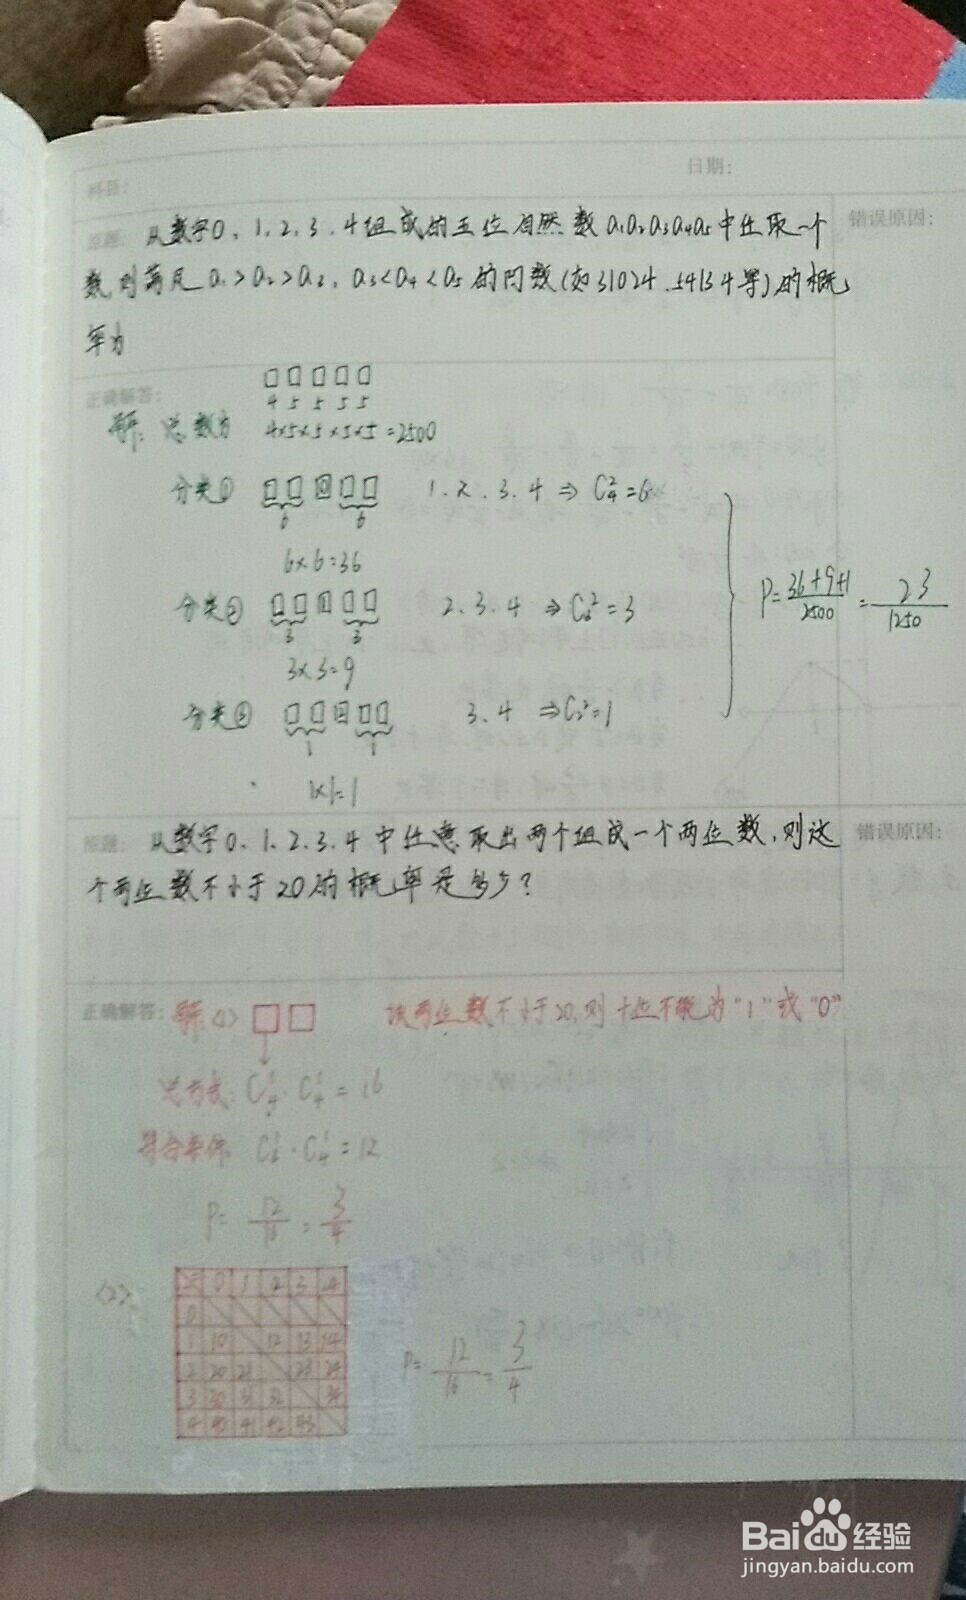 科目:
日期:
原题: 从数字0、1、2、3、4组成的五位自然数a₁a₂a₃a₄a₅中任取一个
错误原因:
数则满足a₁>a₂>a₃, a₃<a₄<a₅的凹数(如31024、54134等)的概
率为
正确解答:
□□□□□
4 5 5 5 5
解: 总数为 4×5×5×5×5=2500
分类① □□0□□ 1、2、3、4 ⇒ C₄²=6
6 6
6×6=36
分类② □□1□□ 2、3、4 ⇒ C₃²=3
3 3
3×3=9
P=36+9+1/2500=23/1250
分类③ □□2□□ 3、4 ⇒C₂²=1
1 1
1×1=1
原题: 从数字0、1、2、3、4中任意取出两个组成一个两位数,则这
错误原因:
个两位数不小于20的概率是多少?
正确解答: 解<1> □□ 该两位数不小于20,则十位不能为"1"或"0"
总方式: C₄¹·C₄¹=16
符合条件 C₃¹·C₄¹=12
P=12/16=3/4
<2>
0 1 2 3 4
0
1 10 12 13 14
2 20 21 23 24
3 30 31 32 34
4 40 41 42 43
P=12/16=3/4
Baidu经验
jingyan.baidu.com